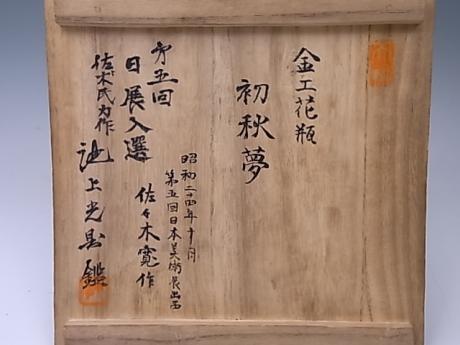 金工花瓶
初秋夢
昭和二十四年十月
第五回日本美術展出品
佐々木寛作
第五回
日展入選
佐々木氏力作
池上光 鑑